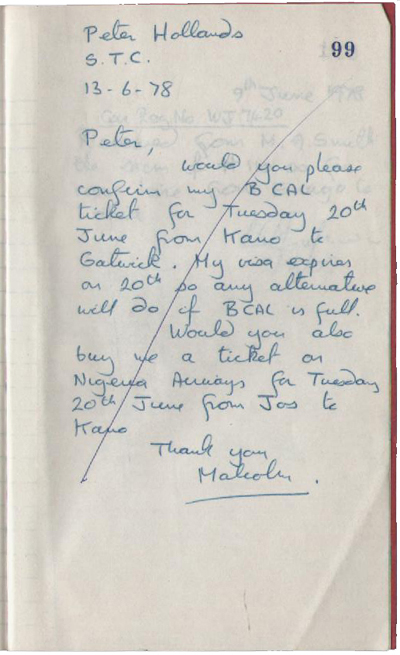 Peter Hollands
99
S.T.C.
13-6-78
9th June 1978
Car Reg No WJ 7620
Peter,
would you please
confirm my B CAL
ticket for Tuesday 20th
June from Kano to
Gatwick. My visa expires
on 20th so any alternative
will do if B CAL is full.
Would you also
buy me a ticket on
Nigeria Airways for Tuesday
20th June from Jos to
Kano
Thank you
Malcolm.